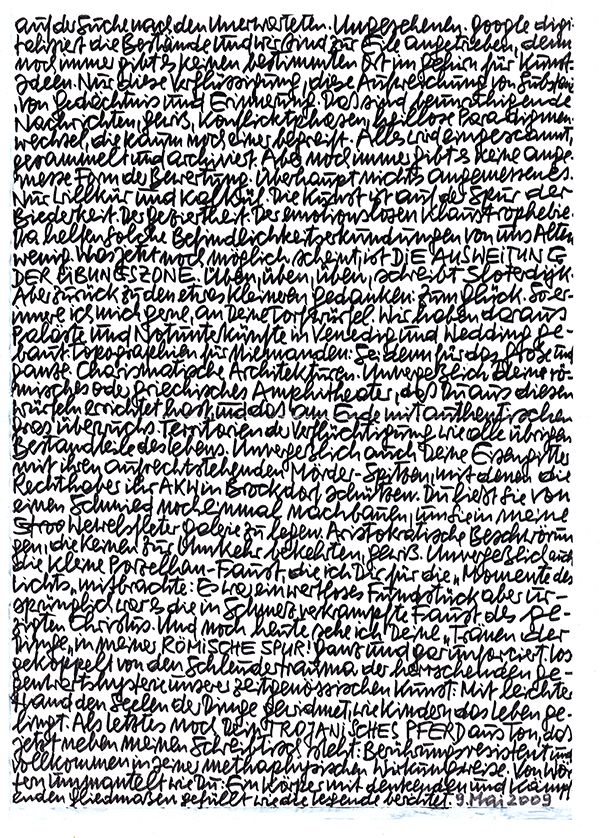 auf der Suche nach den Unerwarteten. Ungesehenen. Google digi-
talisiert die Bestände und wir sind zur Eile angetrieben, denn
noch immer gibt es keinen bestimmten Ort im Gehirn für Kunst-
ideen. Nur diese Verflüssigung, diese Aufweichung von Substanz
von Gedächtnis und Erinnerung. Das sind beunruhigende
Nachrichten, gewiß. Konfliktphasen, heillose Paradigmen-
wechsel, die kaum noch einer begreift. Alles wird eingescannt,
gesammelt und archiviert. Aber noch immer gibt es keine ange-
messene Form der Bewertung. Überhaupt nichts angemessenes.
Nur Willkür und Kalkül. Die Kunst ist auf der Spur der
Biederkeit. Der Geziertheit. Der emotionslosen Klaustrophobie.
Da helfen solche Befindlichkeitserkundungen von uns Alten
wenig. Was jetzt noch möglich scheint ist DIE AUSWEITUNG
DER ÜBUNGSZONE. Üben, üben, üben, schreibt Sloterdijk.
Aber zurück zu den etwas kleineren Gedanken: zum Glück. So er-
innere ich mich gerne, an Deine Torfwürfel. Wir haben daraus
Paläste und Notunterkünfte in Venedig und Wedding ge-
baut. Topographien für Niemanden: Sei denn für das Große und
Ganze. Charismatische Architekturen. Unvergeßlich Dein rö-
misches oder griechisches Amphitheater, das Du aus diesen
Würfeln errichtet hast und das am Ende mit authentischen
Gras überwuchs. Territorien der Verflüchtigung wie alle übrigen
Bestandteile des Lebens. Unvergeßlich auch Deine Eisengitter
mit ihren aufrechtstehenden Mörder-Spitzen, mit denen die
Rechthaber ihr AKW in Brockdorf schützen. Du ließt sie von
einem Schmied noch einmal nachbauen, um sie in meine
Stroo Wewelsfleter Galerie zu legen. Aristokratische Beschwörun-
gen, die Keinen zur Umkehr bekehrten, gewiß. Unvergeßlich auch
die kleine Porzellan-Faust, die ich Dir für die „Momente des
Lichts„ mitbrachte: Es war ein wertloses Fundstück aber ur-
sprünglich war es die in Schmerz verkrampfte Faust des ge-
zigten Christus. Und noch heute sehe ich Deine „Tränen der
Dinge„ in meiner RÖMISCHE SPUR! Ganz und gar infarciert los
gekoppelt von den Schleudertrauma der herrschenden Ge-
genwartshysterie unserer zeitgenössischen Kunst: Mit leichter
Hand den Seelen der Dinge gewidmet, wie Kindern das Leben ge-
lingt. Als letztes noch Dein TROJANISCHES PFERD aus Ton, das
jetzt neben meinen Schreibtisch steht: Berührungsresistent und
vollkommen in seiner methaphysischen Wirkungsweise. Von Wör-
tern ummantelt wie Du: Ein Körper mit denkenden und kämpf-
enden Gliedmaßen gefüllt wie die Legende berichtet. 9. Mai 2009